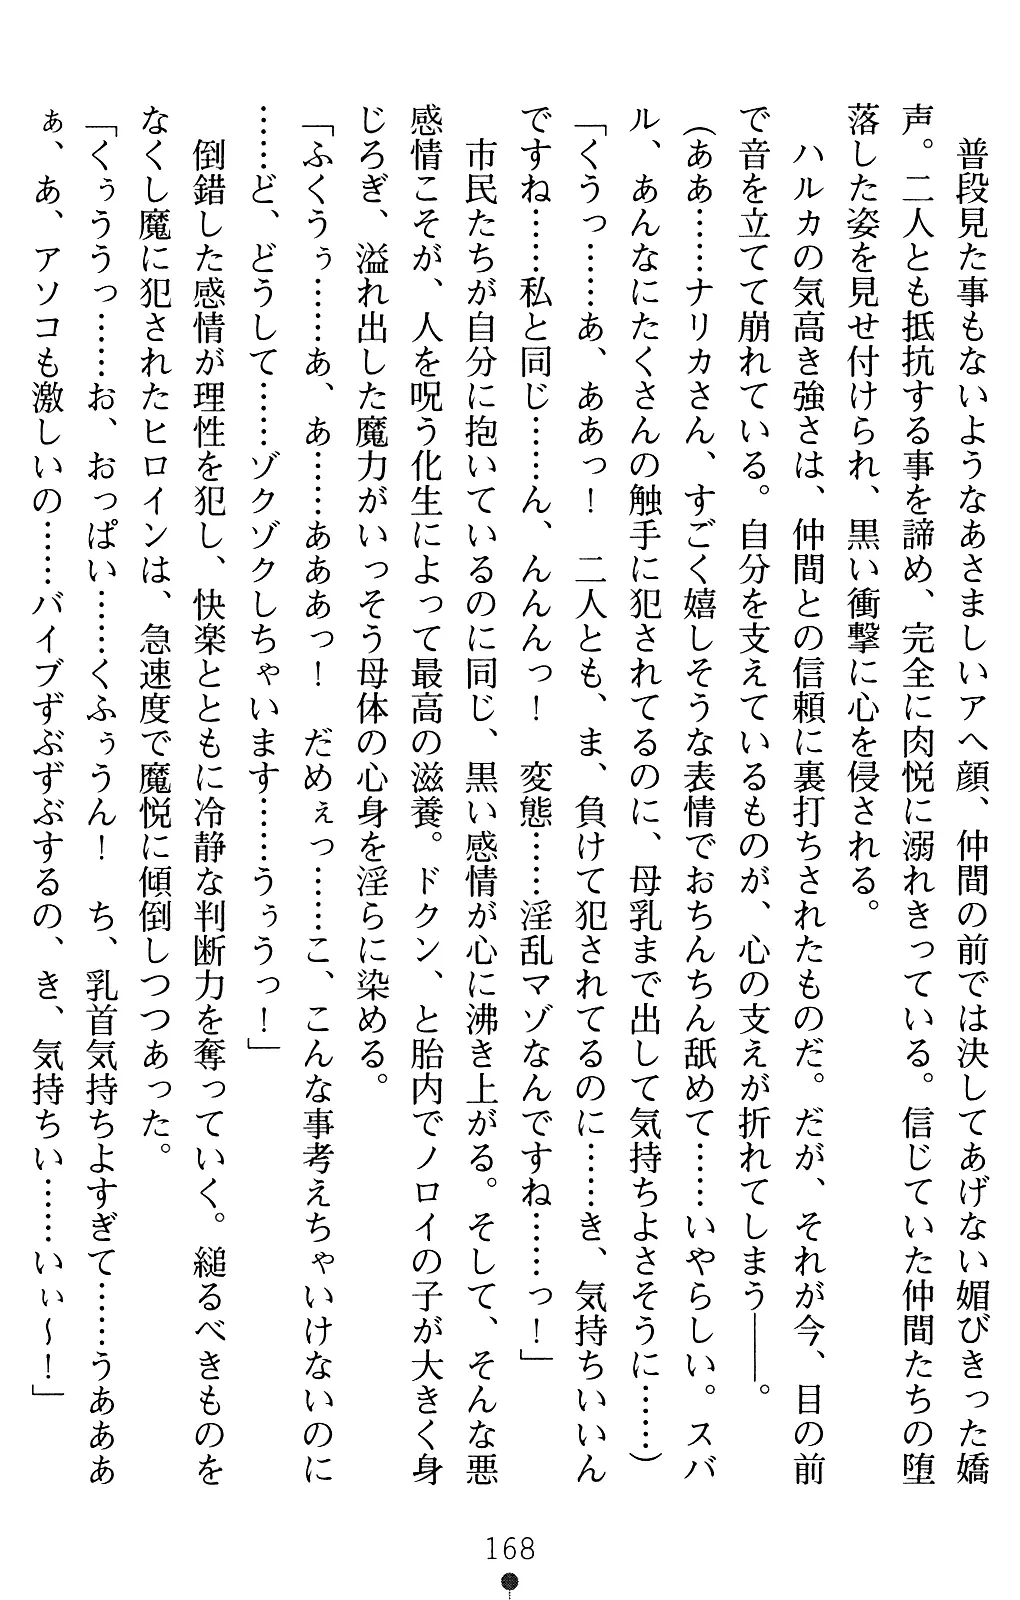 普段見た事もないようなあさましいアヘ顔、仲間の前では決してあげない媚びきった嬌
声。二人とも抵抗する事を諦め、完全に肉悦に溺れきっている。信じていた仲間たちの堕
落した姿を見せ付けられ、黒い衝撃に心を侵される。
ハルカの気高き強さは、仲間との信頼に裏打ちされたものだ。だが、それが今、目の前
で音を立てて崩れている。自分を支えているものが、心の支えが折れてしまう――。
(ああ……ナリカさん、すごく嬉しそうな表情でおちんちん舐めて……いやらしい。スバ
ル、あんなにたくさんの触手に犯されてるのに、母乳まで出して気持ちよさそうに……)
「くうっ……あ、ああっ！　二人とも、ま、負けて犯されてるのに……き、気持ちいいん
ですね……私と同じ……ん、んんんっ！　変態……淫乱マゾなんですね……っ！」
市民たちが自分に抱いているのに同じ、黒い感情が心に沸き上がる。そして、そんな悪
感情こそが、人を呪う化生によって最高の滋養。ドクン、と胎内でノロイの子が大きく身
じろぎ、溢れ出した魔力がいっそう母体の心身を淫らに染める。
「ふくうぅ……あ、あ……あああっ！　だめぇっ……こ、こんな事考えちゃいけないのに
……ど、どうして……ゾクゾクしちゃいます……うぅうっ！」
倒錯した感情が理性を犯し、快楽とともに冷静な判断力を奪っていく。縋るべきものを
なくし魔に犯されたヒロインは、急速度で魔悦に傾倒しつつあった。
「くぅううっ……お、おっぱい……くふぅうん！　ち、乳首気持ちよすぎて……うあああ
ぁ、あ、アソコも激しいの……バイブずぶずぶするの、き、気持ちい……いぃ～！」
168